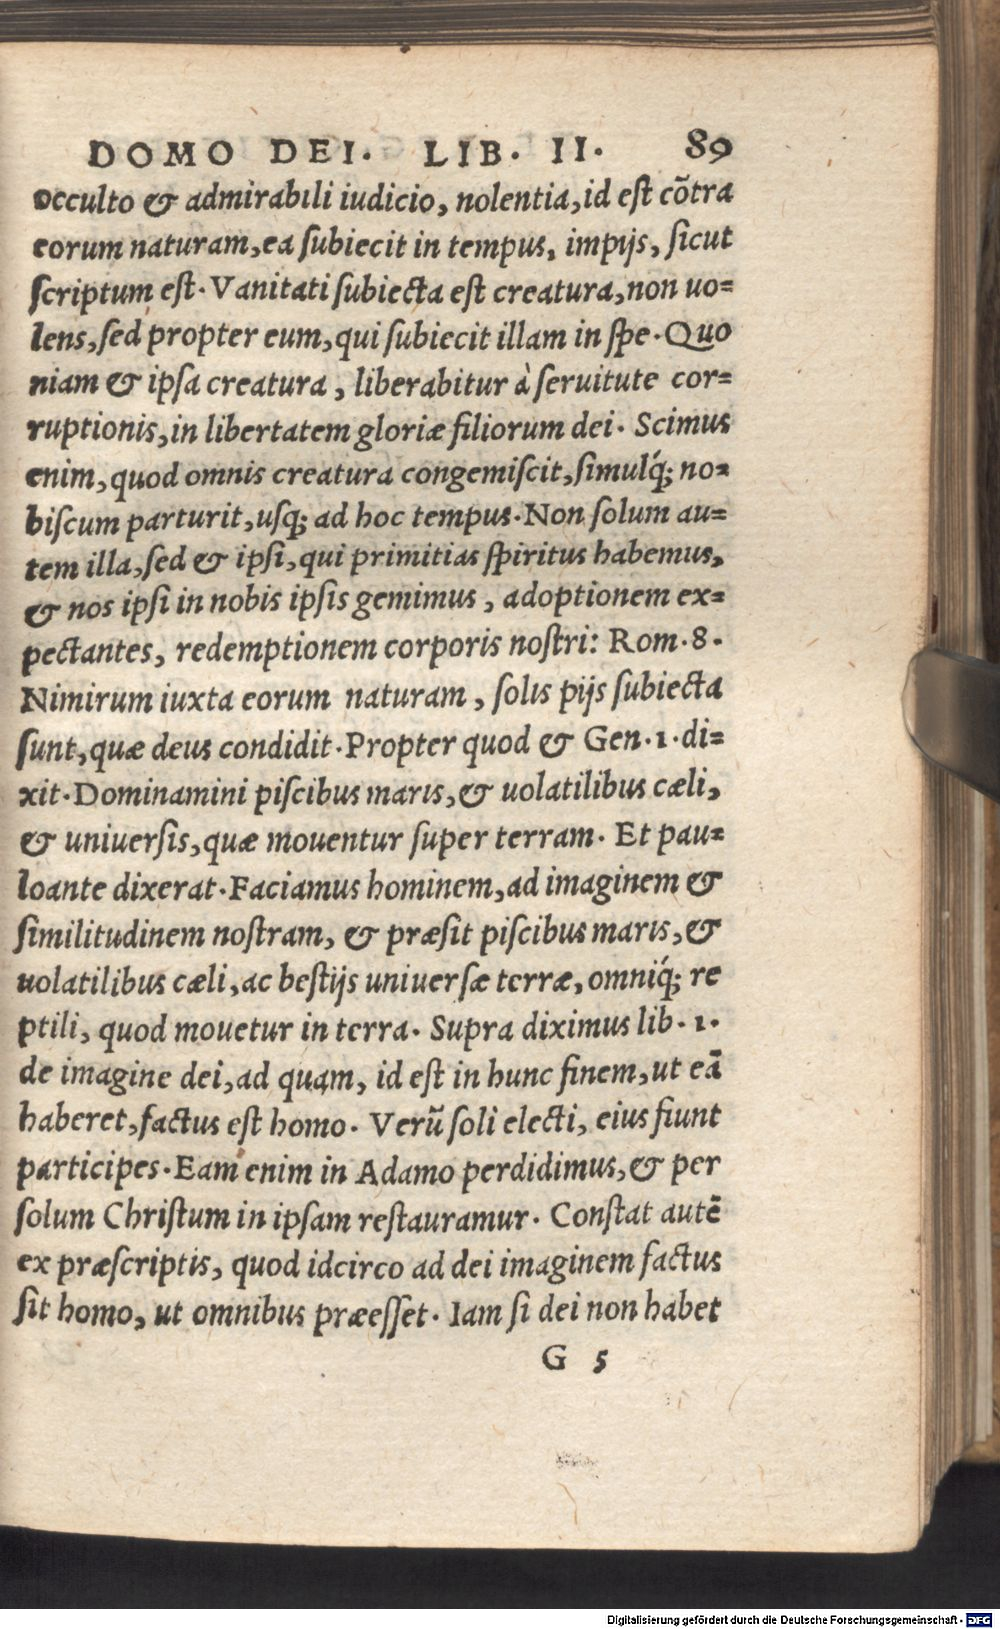 DOMO DEI. LIB. II. 89
occulto & admirabili iudicio, nolentia, id est cõtra
eorum naturam, ea subiecit in tempus, impijs, sicut
scriptum est. Vanitati subiecta est creatura, non uo=
lens, sed propter eum, qui subiecit illam in spe. Quo
niam & ipsa creatura, liberabitur à seruitute cor=
ruptionis, in libertatem gloriæ filiorum dei. Scimus
enim, quod omnis creatura congemiscit, simulq́; no=
biscum parturit, usq; ad hoc tempus. Non solum au=
tem illa, sed & ipsi, qui primitias spiritus habemus,
& nos ipsi in nobis ipsis gemimus, adoptionem ex=
pectantes, redemptionem corporis nostri: Rom. 8.
Nimirum iuxta eorum naturam, solis pijs subiecta
sunt, quæ deus condidit. Propter quod & Gen. 1. di=
xit. Dominamini piscibus maris, & uolatilibus cæli,
& uniuersis, quæ mouentur super terram. Et pau=
loante dixerat. Faciamus hominem, ad imaginem &
similitudinem nostram, & præsit piscibus maris, &
uolatilibus cæli, ac bestijs uniuersæ terræ, omniq́; re
ptili, quod mouetur in terra. Supra diximus lib. 1.
de imagine dei, ad quam, id est in hunc finem, ut eã
haberet, factus est homo. Verũ soli electi, eius fiunt
participes. Eam enim in Adamo perdidimus, & per
solum Christum in ipsam restauramur. Constat autẽ
ex præscriptis, quod idcirco ad dei imaginem factus
sit homo, ut omnibus præesset. Iam si dei non habet
G 5
Digitalisierung gefördert durch die Deutsche Forschungsgemeinschaft - DFG